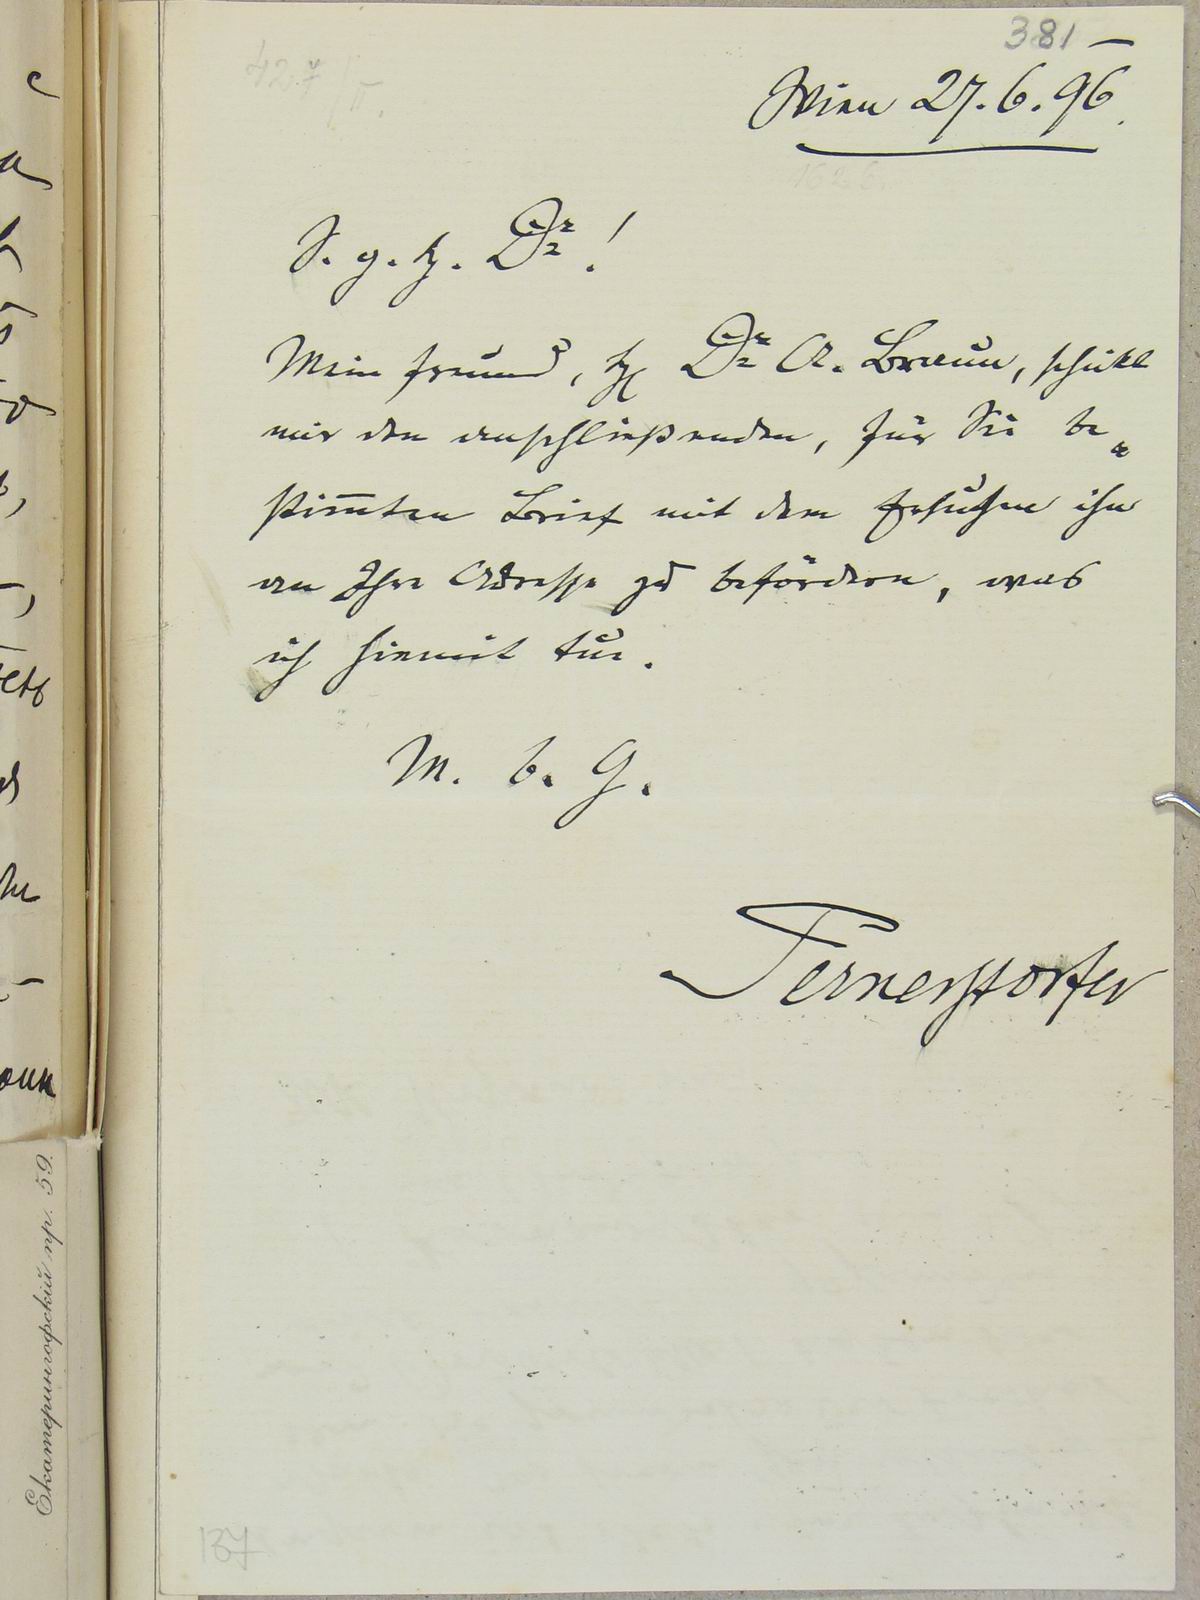 381
Wien 27. 6. 96.
S. g. H. Dr.!
Mein Freund, H Dr A. Braun, schickt
mir den anschließenden, für Sie be-
stimmten Brief mit dem Ersuchen ihn
an Ihre Adresse zu befördern, was
ich hiemit tue.
M. b. G.
Pernerstorfer
137
Екатерингофскій пр. 59.